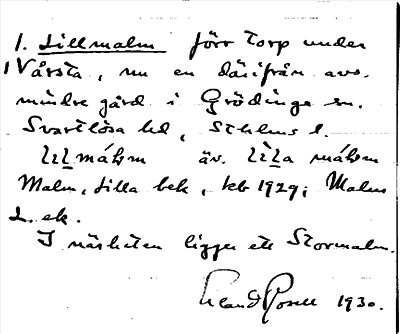 1. Lillmalm förr torp under
Vårsta, nu en därifrån avs.
mindre gård i Grödinge sn.
Svartlösa hd, Sthlms l.
äv.
Malm, Lilla bek, keb 1929; Malm
L. ek.
I närheten ligger ett Stormalm.
Erland Rosell 1930.